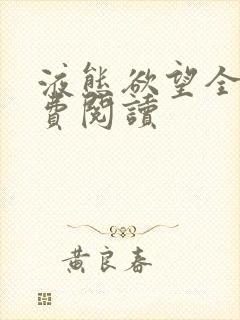 液態欲望全
費閱讀
黃良春